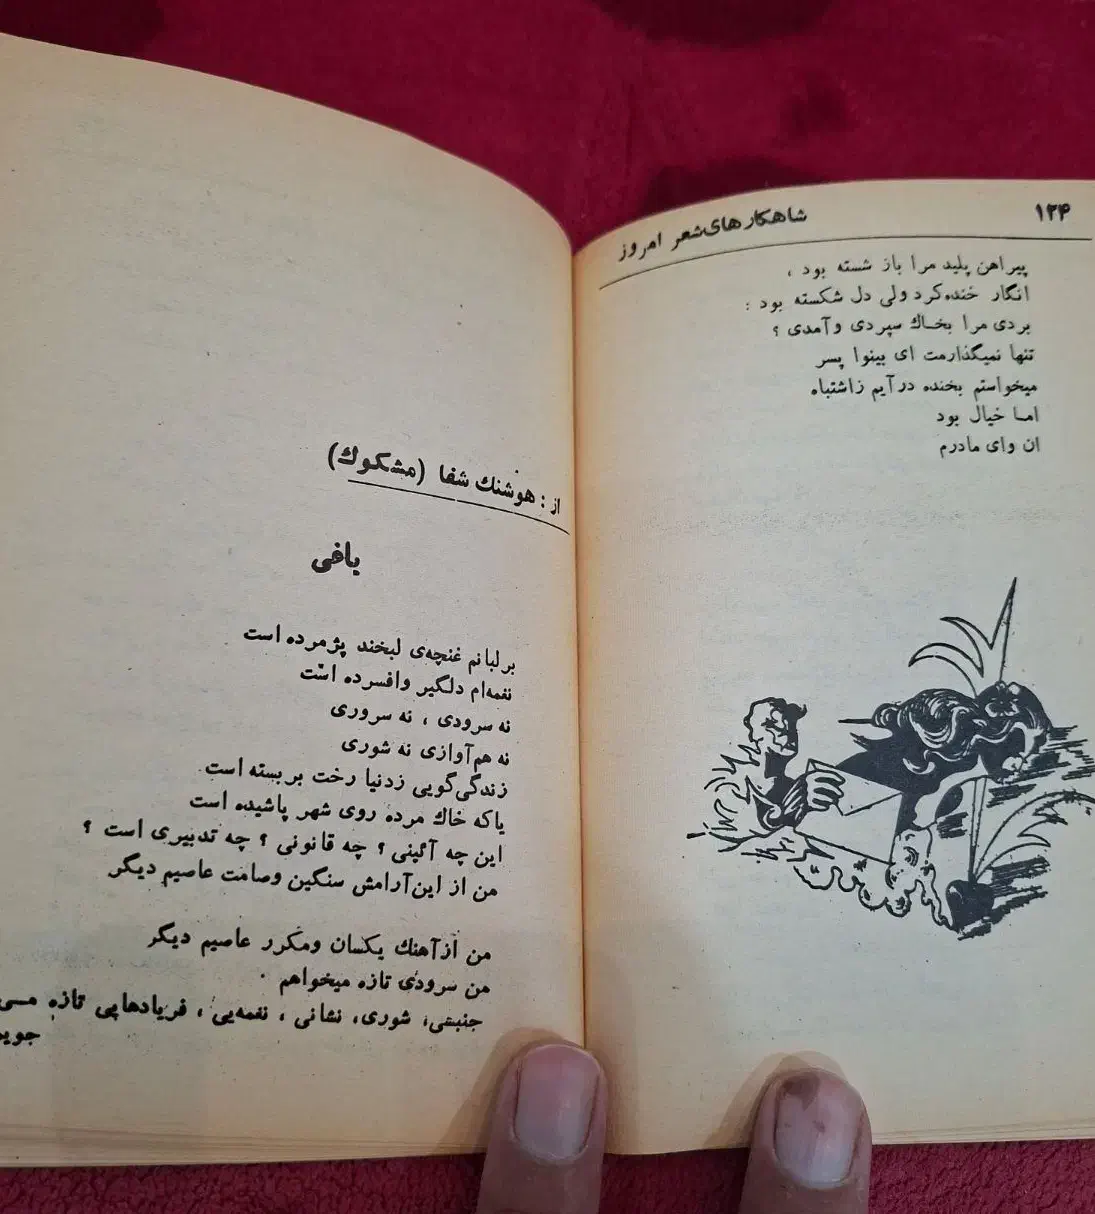 ۱۲۴
شاهکارهای‌شعر امروز
پیراهن پلید مرا باز شسته بود ،
انگار خنده‌کرد ولی دل شکسته بود :
بردی مرا بخاك سپردی وآمدی ؟
تنها نمیگذارمت ای بینوا پسر
میخواستم بخنده درآیم زاشتباه
اما خیال بود
ان وای مادرم
از : هوشنك شفا (مشكوك)
یاغی
برلبانم غنچه‌ی لبخند پژمرده است
نغمه‌ام دلگیر وافسرده است
نه سرودی ، نه سروری
نه هم‌آوازی نه شوری
زندگی‌گویی زدنیا رخت بربسته است
یاکه خاك مرده روی شهر پاشیده است
این چه آئینی ؟ چه قانونی ؟ چه تدبیری است ؟
من از این‌آرامش سنگین وصامت عاصیم دیگر
من ازآهنك یکسان ومکرر عاصیم دیگر
من سرودی تازه میخواهم
جنبشی، شوری، نشانی ، نغمه‌یی ، فریادهایی تازه مسی